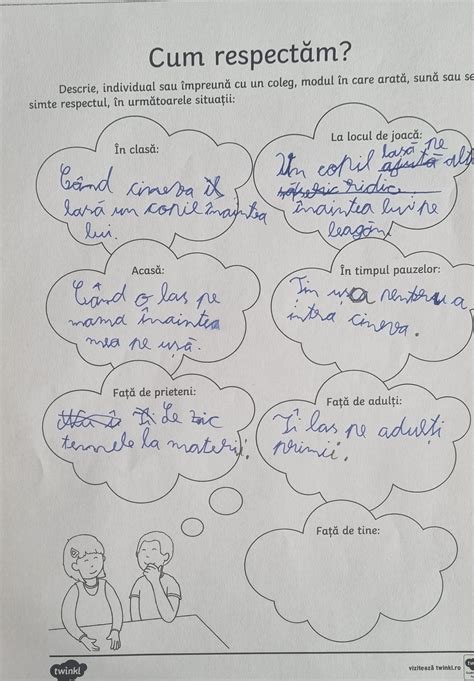 Cum respectăm?
Descrie, individual sau împreună cu un coleg, modul în care arată, sună sau se
simte respectul, în următoarele situații:
În clasă:
Când cineva îl
lasă un copil înaintea
lui.
La locul de joacă:
lasă pe
Un copil ajută alt
ridic
înaintea lui pe
leagăn.
Acasă:
Când o las pe
mama înaintea
mea pe ușă.
În timpul pauzelor:
Țin ușa pentru a
intra cineva.
Față de prieteni:
Le zic
temele la materii.
Față de adulți:
Îi las pe adulți
primii.
Față de tine:
twinkl
vizitează twinkl.ro